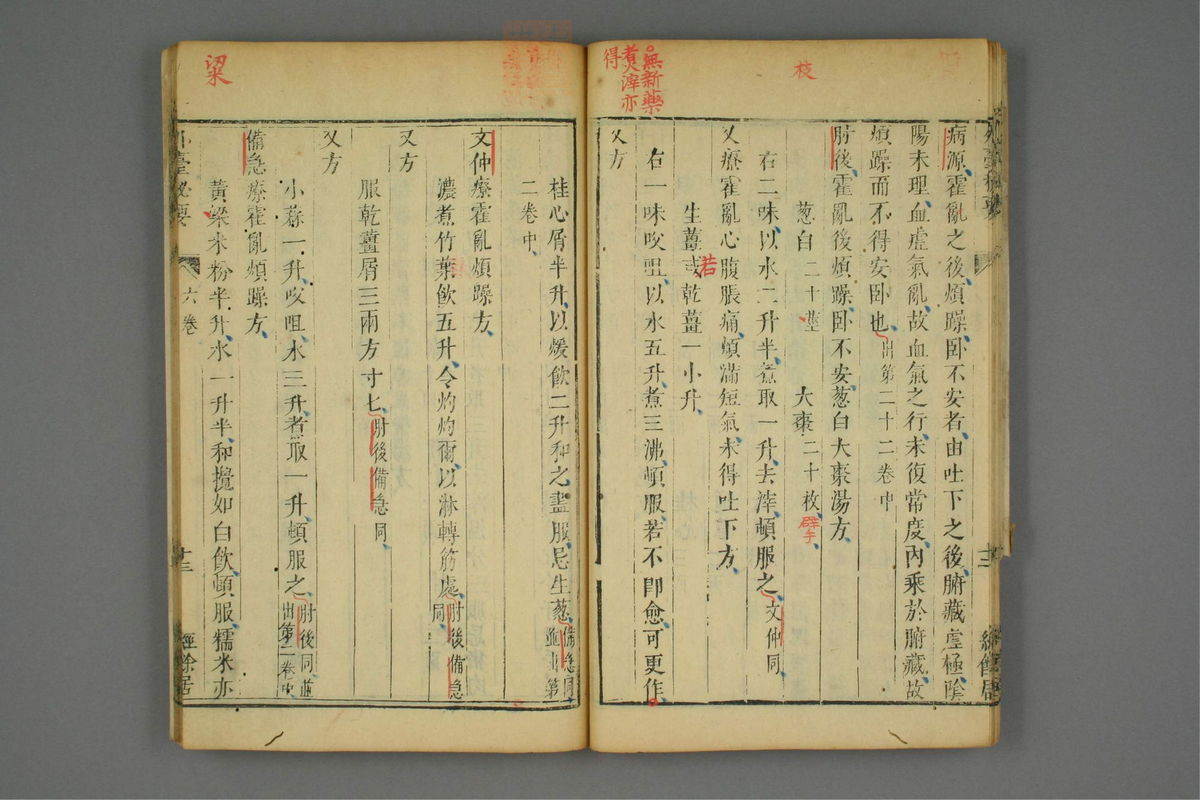 病源霍亂之後煩躁卧不安者由吐下之後腑藏虛極陰
陽未理血虛氣亂故血氣之行未復常度内乘於腑藏故
煩躁而不得安卧也出第二十二卷中
肘後霍亂後煩躁卧不安葱白大棗湯方
葱白二十莖 大棗二十枚
右二味以水二升半煮取一升去滓頓服之文仲同
又療霍亂心腹脹痛煩滿短氣未得吐下方
生薑 乾薑一小升
右一味㕮咀以水五升煮三沸頓服若不即愈可更作
又方
枝
若
擘去
無新藥
煮滓亦
得
桂心屑半升以煖飲二升和之盡服忌生葱備急同
並出第
二卷中
文仲療霍亂煩躁方
濃煮竹葉飲五升令灼灼爾以淋轉筋處肘後備急
同
又方
服乾薑屑三兩方寸匕肘後備急同
又方
小蒜一升㕮咀水三升煮取一升頓服之肘後同並
出第二卷中
備急療霍亂煩躁方
黃梁米粉半升水一升半和攪如白飲頓服糯米亦
梁
外臺秘要 六卷 十三 經餘居